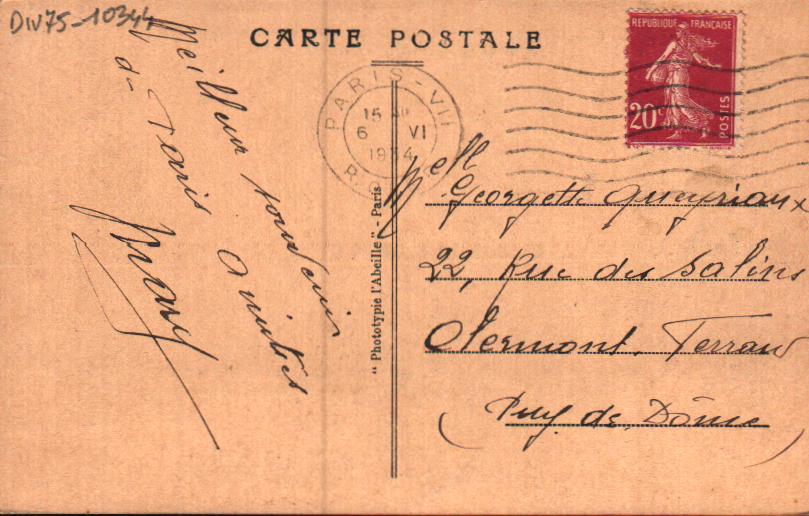 Div75-10344
CARTE POSTALE
REPUBLIQUE FRANÇAISE
20c
POSTES
PARIS-VII
15
6 VI
1934
R.
Meilleur souvenir
de Paris Amitiés
"Phototypie l'Abeille" - Paris
Mell Georgette
22, Rue des Salins
Clermont, Ferrand
(Puy. de, Dôme)